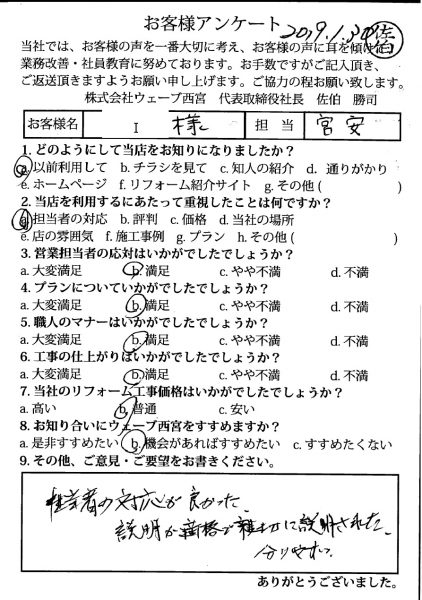 お客様アンケート 2019.1.30 佐伯
当社では、お客様の声を一番大切に考え、お客様の声に耳を傾け
業務改善・社員教育に努めております。お手数ですがご記入頂き、
ご返送頂きますようお願い申し上げます。ご協力の程お願い致します。
株式会社ウェーブ西宮 代表取締役社長 佐伯 勝司
お客様名 I 様 担当 宮安
1. どのようにして当店をお知りになりましたか?
a. 以前利用して b. チラシを見て c. 知人の紹介 d. 通りがかり
e. ホームページ f. リフォーム紹介サイト g. その他 ( )
2. 当店を利用するにあたって重視したことは何ですか?
a. 担当者の対応 b. 評判 c. 価格 d. 当社の場所
e. 店の雰囲気 f. 施工事例 g. プラン h. その他 ( )
3. 営業担当者の応対はいかがでしたでしょうか?
a. 大変満足 b. 満足 c. やや不満 d. 不満
4. プランについていかがでしたでしょうか?
a. 大変満足 b. 満足 c. やや不満 d. 不満
5. 職人のマナーはいかがでしたでしょうか?
a. 大変満足 b. 満足 c. やや不満 d. 不満
6. 工事の仕上がりはいかがでしたでしょうか?
a. 大変満足 b. 満足 c. やや不満 d. 不満
7. 当社のリフォーム工事価格はいかがでしたでしょうか?
a. 高い b. 普通 c. 安い
8. お知り合いにウェーブ西宮をすすめますか?
a. 是非すすめたい b. 機会があればすすめたい c. すすめたくない
9. その他、ご意見・ご要望をお書きください。
担当者の対応が良かった
説明が価格で親切に説明された
分りやすい
ありがとうございました。